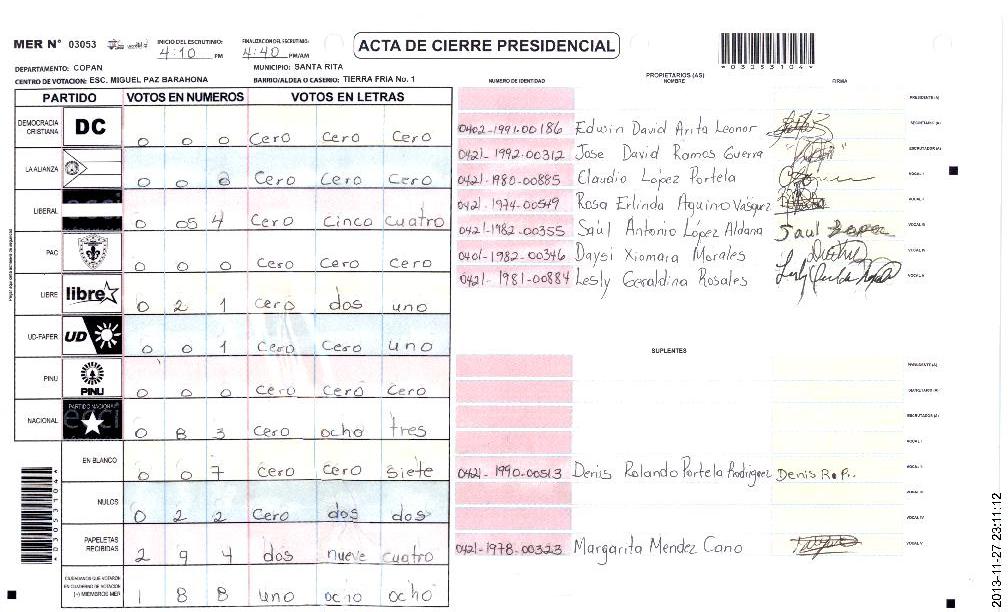 MER N° 03053
INICIO DEL ESCRUTINIO: 4:10 PM
FINALIZACION DEL ESCRUTINIO: 4:40 PM/AM
ACTA DE CIERRE PRESIDENCIAL
*03053104*
DEPARTAMENTO: COPAN
MUNICIPIO: SANTA RITA
CENTRO DE VOTACION: ESC. MIGUEL PAZ BARAHONA
BARRIO/ALDEA O CASERIO: TIERRA FRIA No. 1
PARTIDO VOTOS EN NUMEROS VOTOS EN LETRAS
DEMOCRACIA CRISTIANA DC 0 0 0 Cero Cero Cero
LA ALIANZA 0 0 0 Cero Cero Cero
LIBERAL 0 05 4 Cero Cinco Cuatro
PAC 0 0 0 Cero Cero Cero
LIBRE libre 0 2 1 Cero dos uno
UD-FAPER UD 0 0 1 Cero Cero uno
PINU PINU 0 0 0 Cero Cero Cero
NACIONAL PARTIDO NACIONAL 0 8 3 Cero ocho tres
EN BLANCO 0 0 7 Cero Cero Siete
NULOS 0 2 2 Cero dos dos
PAPELETAS RECIBIDAS 2 9 4 dos nueve Cuatro
CIUDADANOS QUE VOTARON EN CUADERNO DE VOTACION (+) MIEMBROS MER 1 8 8 uno ocho ocho
PROPIETARIOS (AS)
NUMERO DE IDENTIDAD NOMBRE FIRMA
PRESIDENTE (A)
0402-1991-00186 Edwin David Arita Leonor SECRETARIO (A)
0421-1992-00312 Jose David Ramos Guerra ESCRUTADOR (A)
0421-1980-00885 Claudio Lopez Portela VOCAL I
0421-1974-00549 Rosa Erlinda Aquino Vasquez VOCAL II
0421-1982-00355 Saúl Antonio López Aldana Saul VOCAL III
0401-1982-00346 Daysi Xiomara Morales VOCAL IV
0421-1981-00884 Lesly Geraldina Rosales VOCAL V
SUPLENTES
PRESIDENTE (A)
SECRETARIO (A)
ESCRUTADOR (A)
VOCAL I
0421-1990-00513 Denis Rolando Portela Rodriguez Denis R.P. VOCAL II
VOCAL III
VOCAL IV
0421-1978-00323 Margarita Mendez Cano VOCAL V
2013-11-27 23:11:12